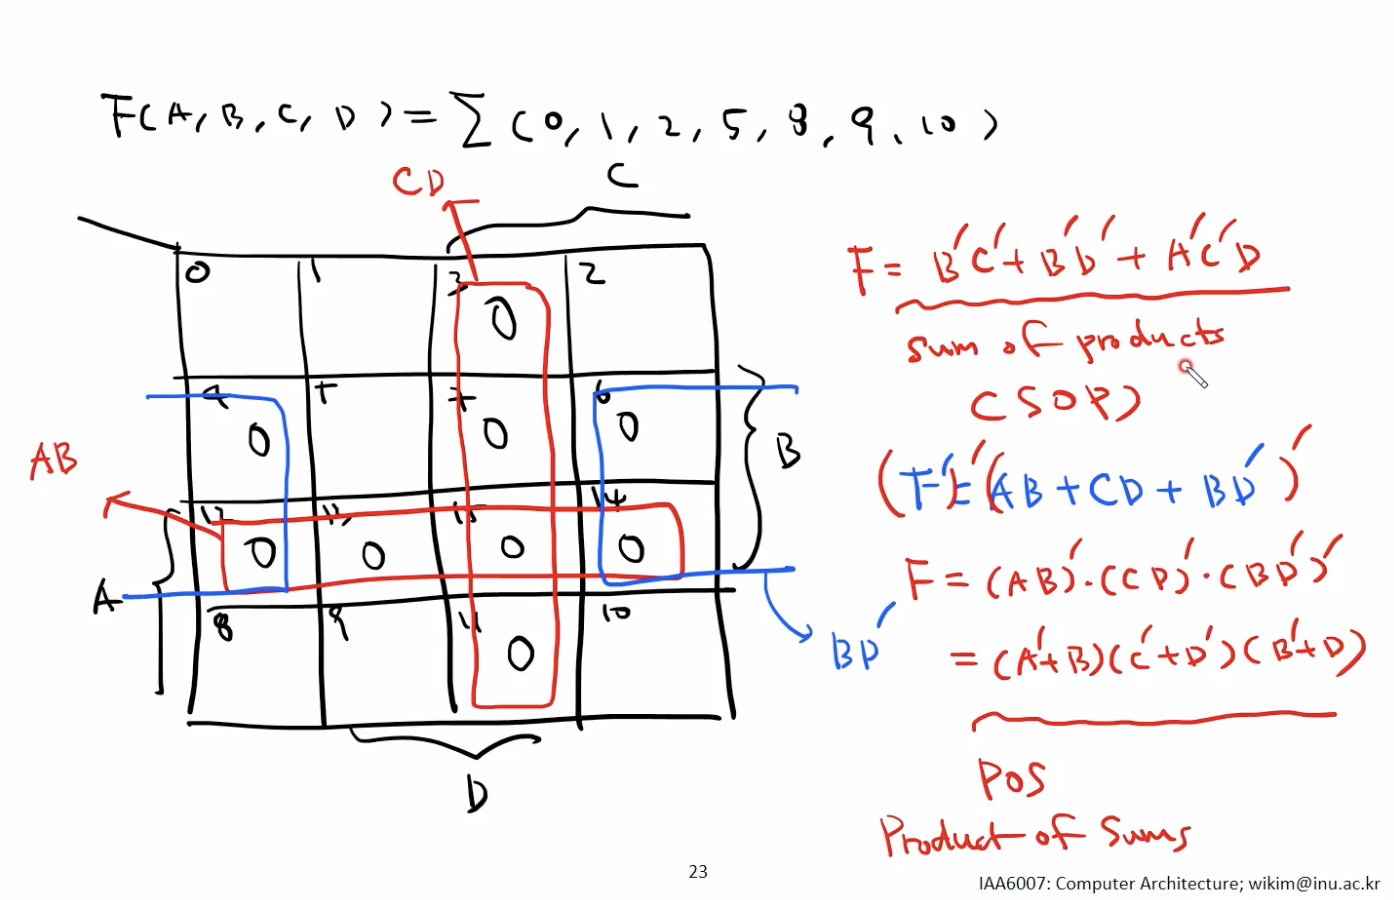 F(A, B, C, D) = Σ(0, 1, 2, 5, 8, 9, 10)
CD
C
0 1 3 2
0
4 5 7 6
0 0 0
B
AB
12 13 15 14
0 0 0 0
A
8 9 11 10
0
D
BD'
F = B'C' + B'D' + A'C'D
sum of products
(SOP)
(F')' = (AB + CD + BD')'
F = (AB)'·(CD)'·(BD')'
= (A'+B)(C'+D')(B'+D)
POS
Product of Sums
23
IAA6007: Computer Architecture; wikim@inu.ac.kr